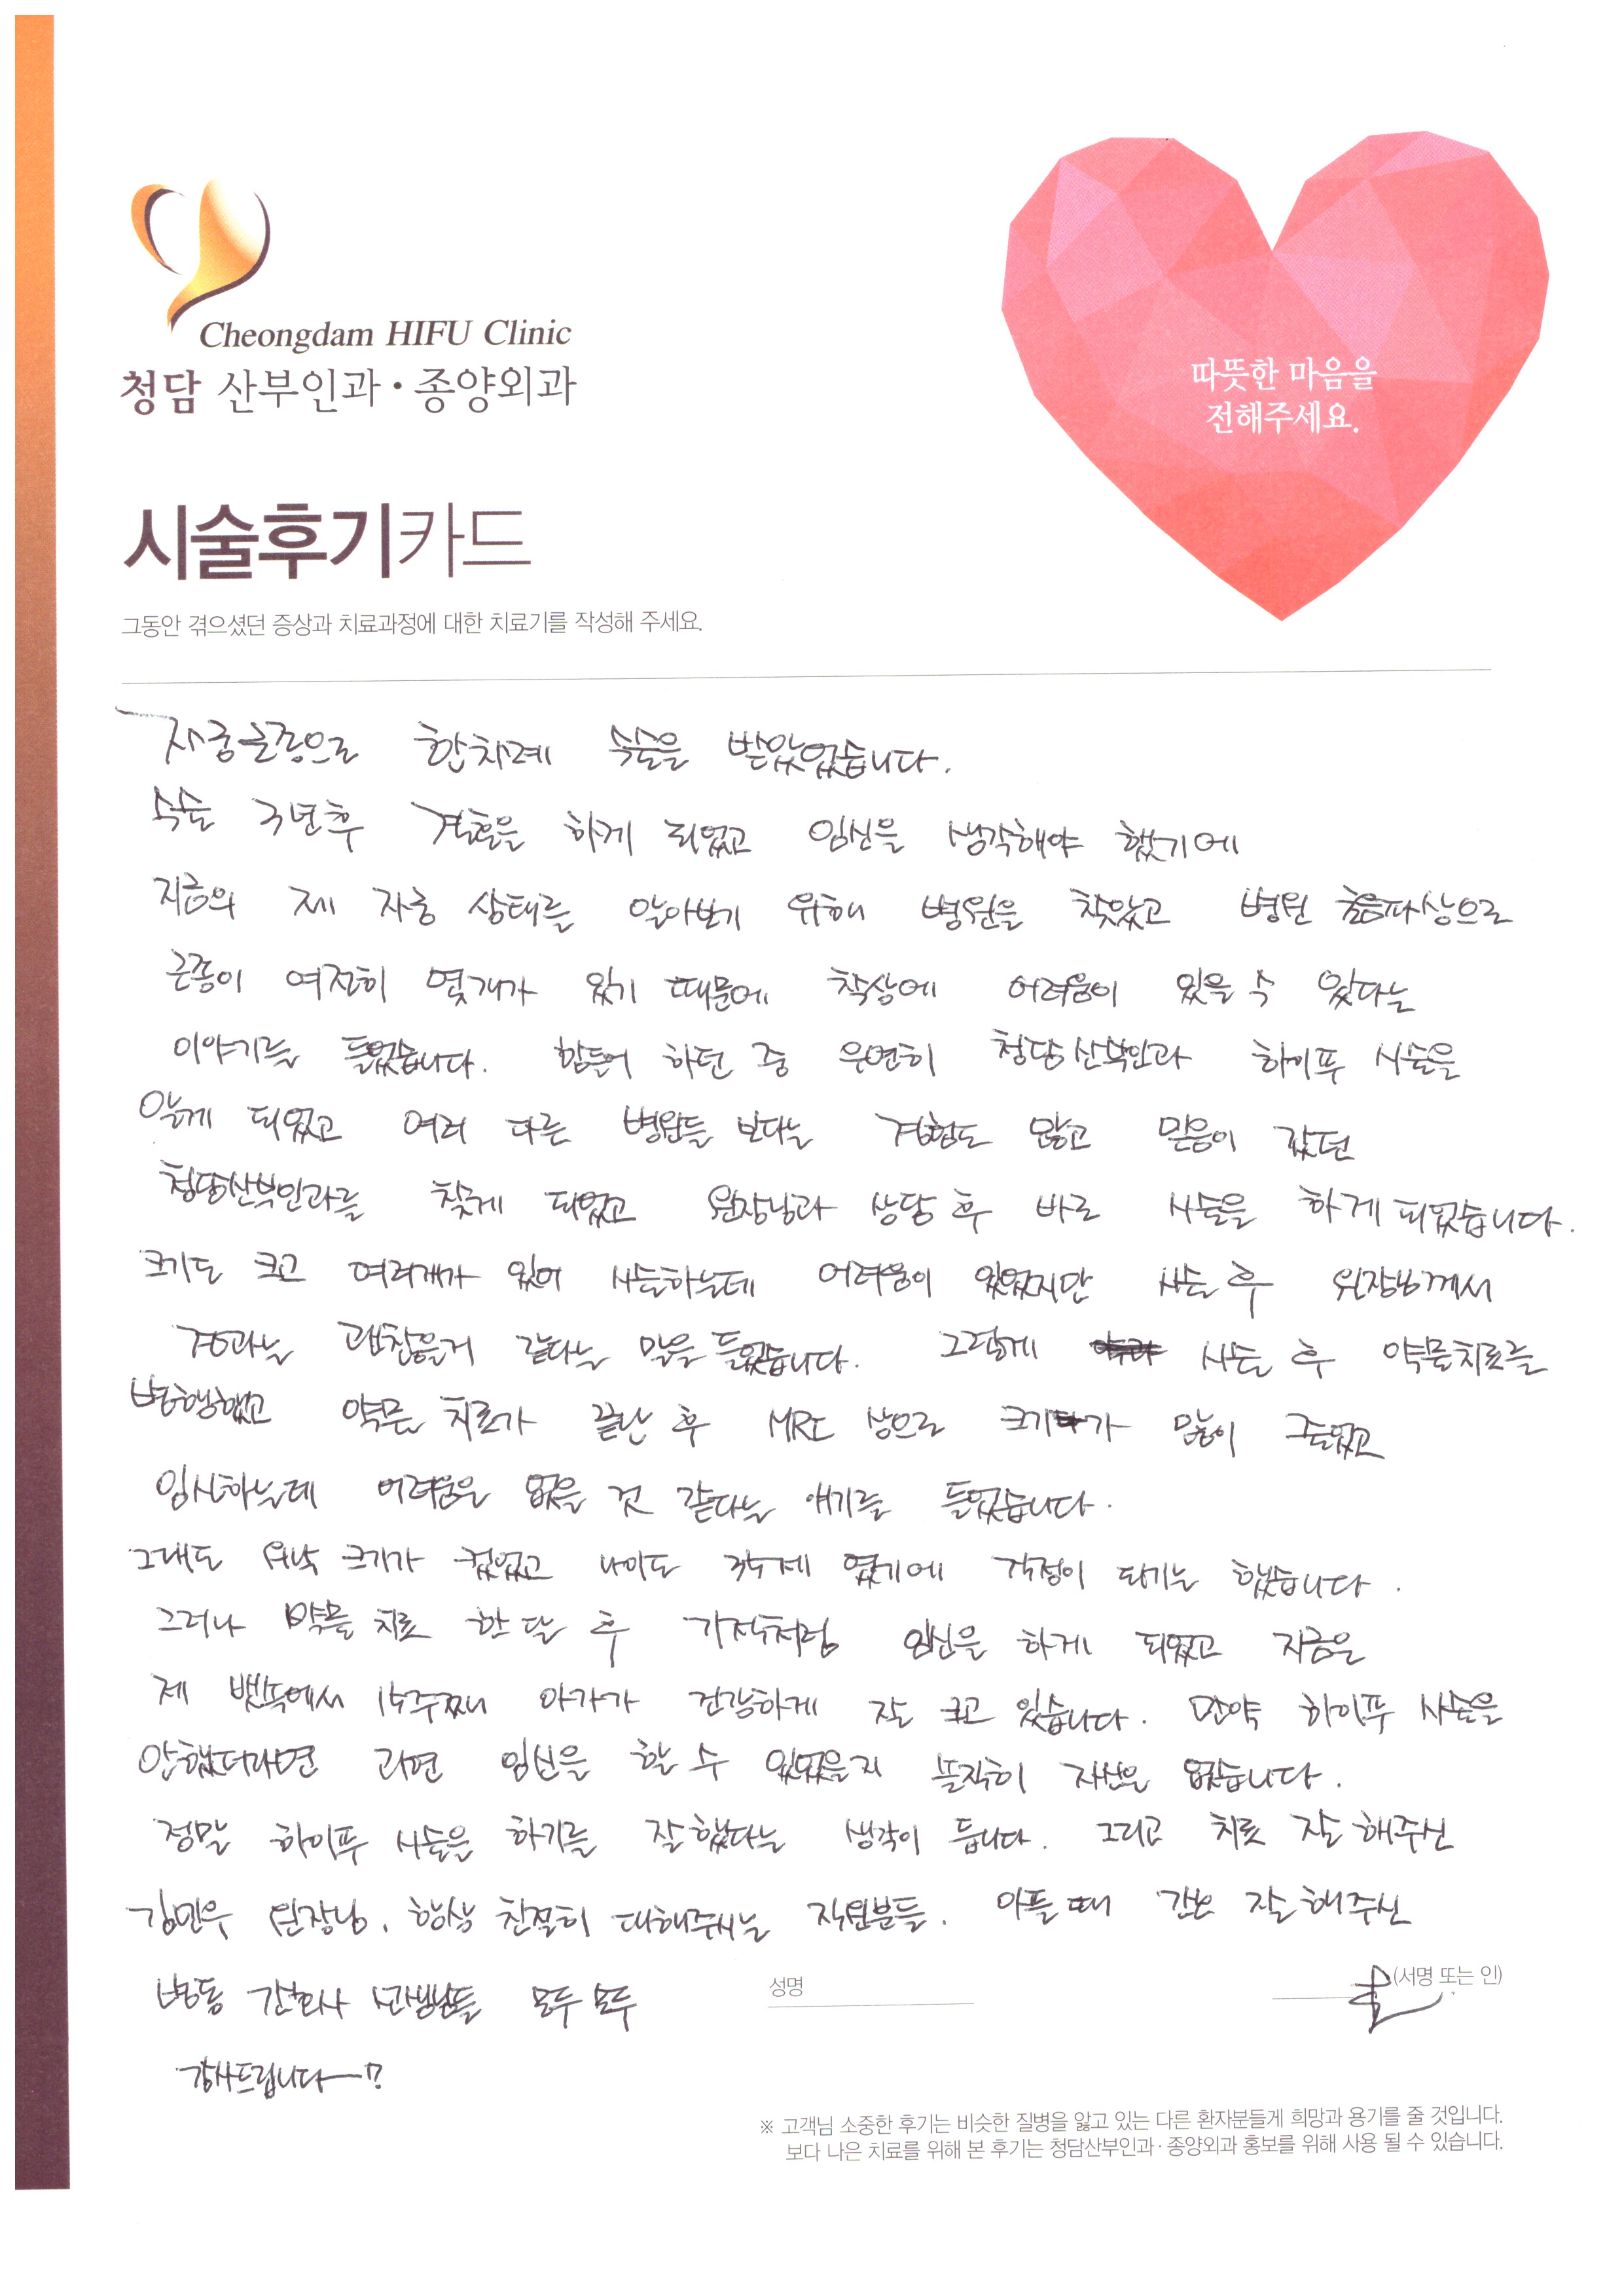 Cheongdam HIFU Clinic
청담 산부인과·종양외과
따뜻한 마음을
전해주세요.
시술후기카드
그동안 겪으셨던 증상과 치료과정에 대한 치료기를 작성해 주세요.
자궁근종으로 한차례 수술을 받았었습니다.
수술 3년후 결혼을 하게 되었고 임신을 생각해야 했기에
지금의 제 자궁 상태를 알아보기 위해 병원을 찾았고 병원 초음파상으로
근종이 여전히 몇개가 있기 때문에 착상에 어려움이 있을 수 있다는
이야기를 들었습니다. 힘들어 하던 중 우연히 청담산부인과 하이푸 시술을
알게 되었고 여러 다른 병원들 보다는 경험도 많고 믿음이 갔던
청담산부인과를 찾게 되었고 원장님과 상담 후 바로 시술을 하게 되었습니다.
크기도 크고 여러개가 있어 시술하는데 어려움이 있었지만 시술 후 원장님께서
경과는 괜찮을거 같다는 말을 들었습니다. 그렇게 시술 후 약물치료를
병행했고 약물 치료가 끝난 후 MRI 상으로 크기가 많이 줄었고
임신하는데 어려움은 없을 것 같다는 얘기를 들었습니다.
그래도 워낙 크기가 컸었고 나이도 35세 였기에 걱정이 되기는 했습니다.
그러나 약물 치료 한 달 후 기적처럼 임신을 하게 되었고 지금은
제 뱃속에서 15주째 아가가 건강하게 잘 크고 있습니다. 만약 하이푸 시술을
안했더라면 과연 임신을 할 수 있었을지 솔직히 자신은 없습니다.
정말 하이푸 시술을 하기를 잘했다는 생각이 듭니다. 그리고 치료 잘 해주신
김민우 원장님, 항상 친절히 대해주시는 직원분들. 아플 때 간호 잘 해주신
병동 간호사 선생님들 모두 모두
감사드립니다~!!
성명
(서명 또는 인)
※ 고객님 소중한 후기는 비슷한 질병을 앓고 있는 다른 환자분들게 희망과 용기를 줄 것입니다.
보다 나은 치료를 위해 본 후기는 청담산부인과·종양외과 홍보를 위해 사용 될 수 있습니다.